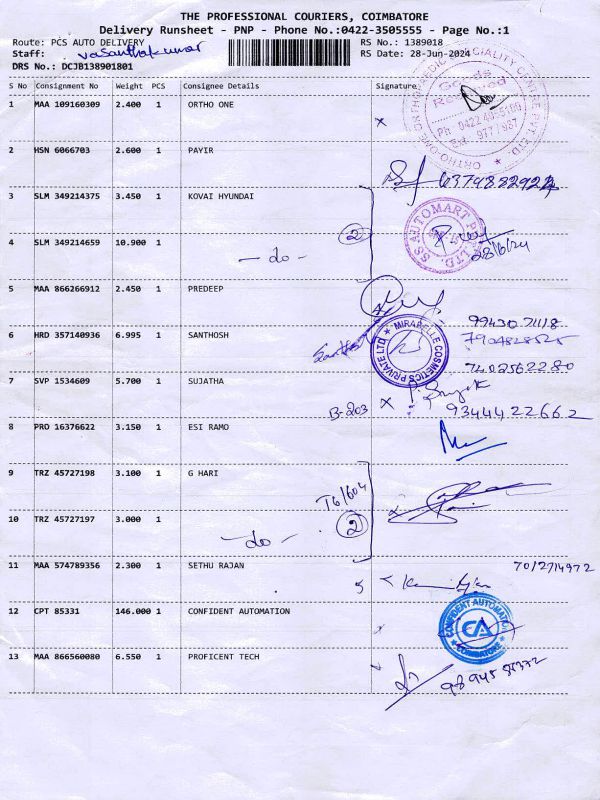 THE PROFESSIONAL COURIERS, COIMBATORE
Delivery Runsheet - PNP - Phone No.:0422-3505555 - Page No.:1
Route: PCS AUTO DELIVERY RS No.: 1389018
Staff: Vasanthakumar RS Date: 28-Jun-2024
DRS No.: DCJB138901801
S No Consignment No Weight PCS Consignee Details Signature
1 MAA 109160309 2.400 1 ORTHO ONE
Goods
Ph 0422 40
2 HSN 6066703 2.600 1 PAYIR
3 SLM 349214375 3.450 1 KOVAI HYUNDAI
SS AUTOMART
4 SLM 349214659 10.900 1 - do - 2
28/6/24
5 MAA 866266912 2.450 1 PREDEEP
6 HRD 357140936 6.995 1 SANTHOSH
MIRABELLE COSMETICS PRIVATE LTD
7402562280
7 SVP 1534609 5.700 1 SUJATHA
B-203 9344422662
8 PRO 16376622 3.150 1 ESI RAMO
9 TRZ 45727198 3.100 1 G HARI
T6/604
10 TRZ 45727197 3.000 1 - do - 2
11 MAA 574789356 2.300 1 SETHU RAJAN
12 CPT 85331 146.000 1 CONFIDENT AUTOMATION
CONFIDENT AUTOMATION
CA
COIMBATORE
13 MAA 866560080 6.550 1 PROFICENT TECH